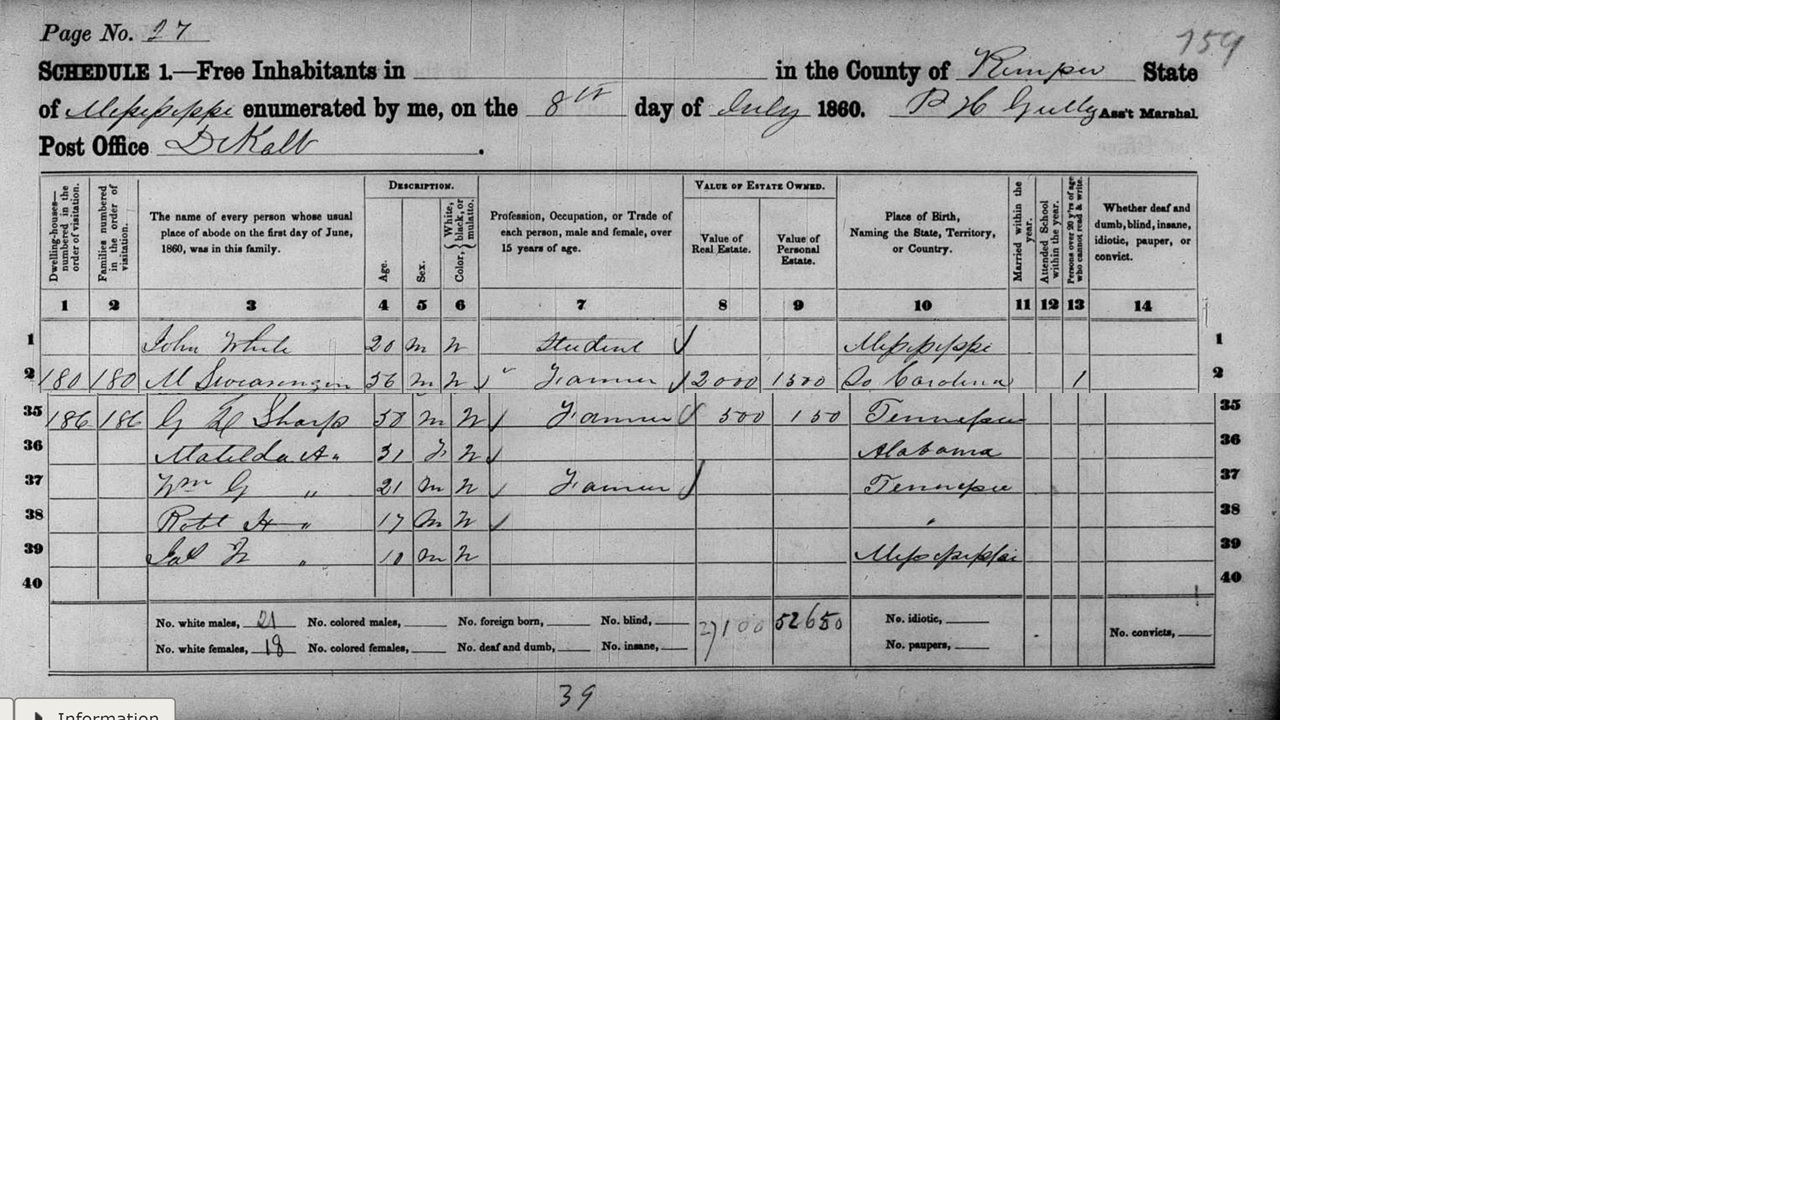 Page No. 27
159
SCHEDULE 1.—Free Inhabitants in in the County of Kemper State
of Mississippi enumerated by me, on the 8th day of July 1860. P H Gully Ass't Marshal.
Post Office DeKalb .
Dwelling-houses—numbered in the order of visitation.
Families numbered in the order of visitation.
The name of every person whose usual place of abode on the first day of June, 1860, was in this family.
DESCRIPTION.
Age.
Sex.
Color, { White, black, or mulatto.
Profession, Occupation, or Trade of each person, male and female, over 15 years of age.
VALUE OF ESTATE OWNED.
Value of Real Estate.
Value of Personal Estate.
Place of Birth, Naming the State, Territory, or Country.
Married within the year.
Attended School within the year.
Persons over 20 y'rs of age who cannot read & write.
Whether deaf and dumb, blind, insane, idiotic, pauper, or convict.
1 2 3 4 5 6 7 8 9 10 11 12 13 14
1 John White 20 m W Student Mississippi 1
2 180 180 M Swearengin 56 m W " Farmer 2000 1500 So Carolina 1 2
35 186 186 G L Sharp 50 m W Farmer 500 150 Tennessee 35
36 Matilda A " 31 F W Alabama 36
37 Wm G " 21 m W Farmer Tennessee 37
38 Robt H " 17 m W " 38
39 Jas W " 10 m W Mississippi 39
40 40
No. white males, 21 No. colored males, No. foreign born, No. blind, 27100 52650 No. idiotic,
No. white females, 18 No. colored females, No. deaf and dumb, No. insane, No. paupers, No. convicts,
39
Information